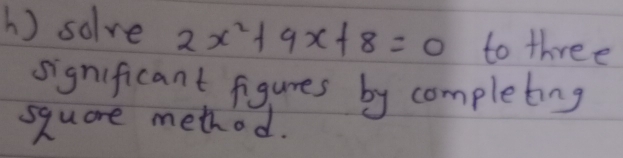 h) solve 2x²+9x+8=0 to three
significant figures by completing
square method.